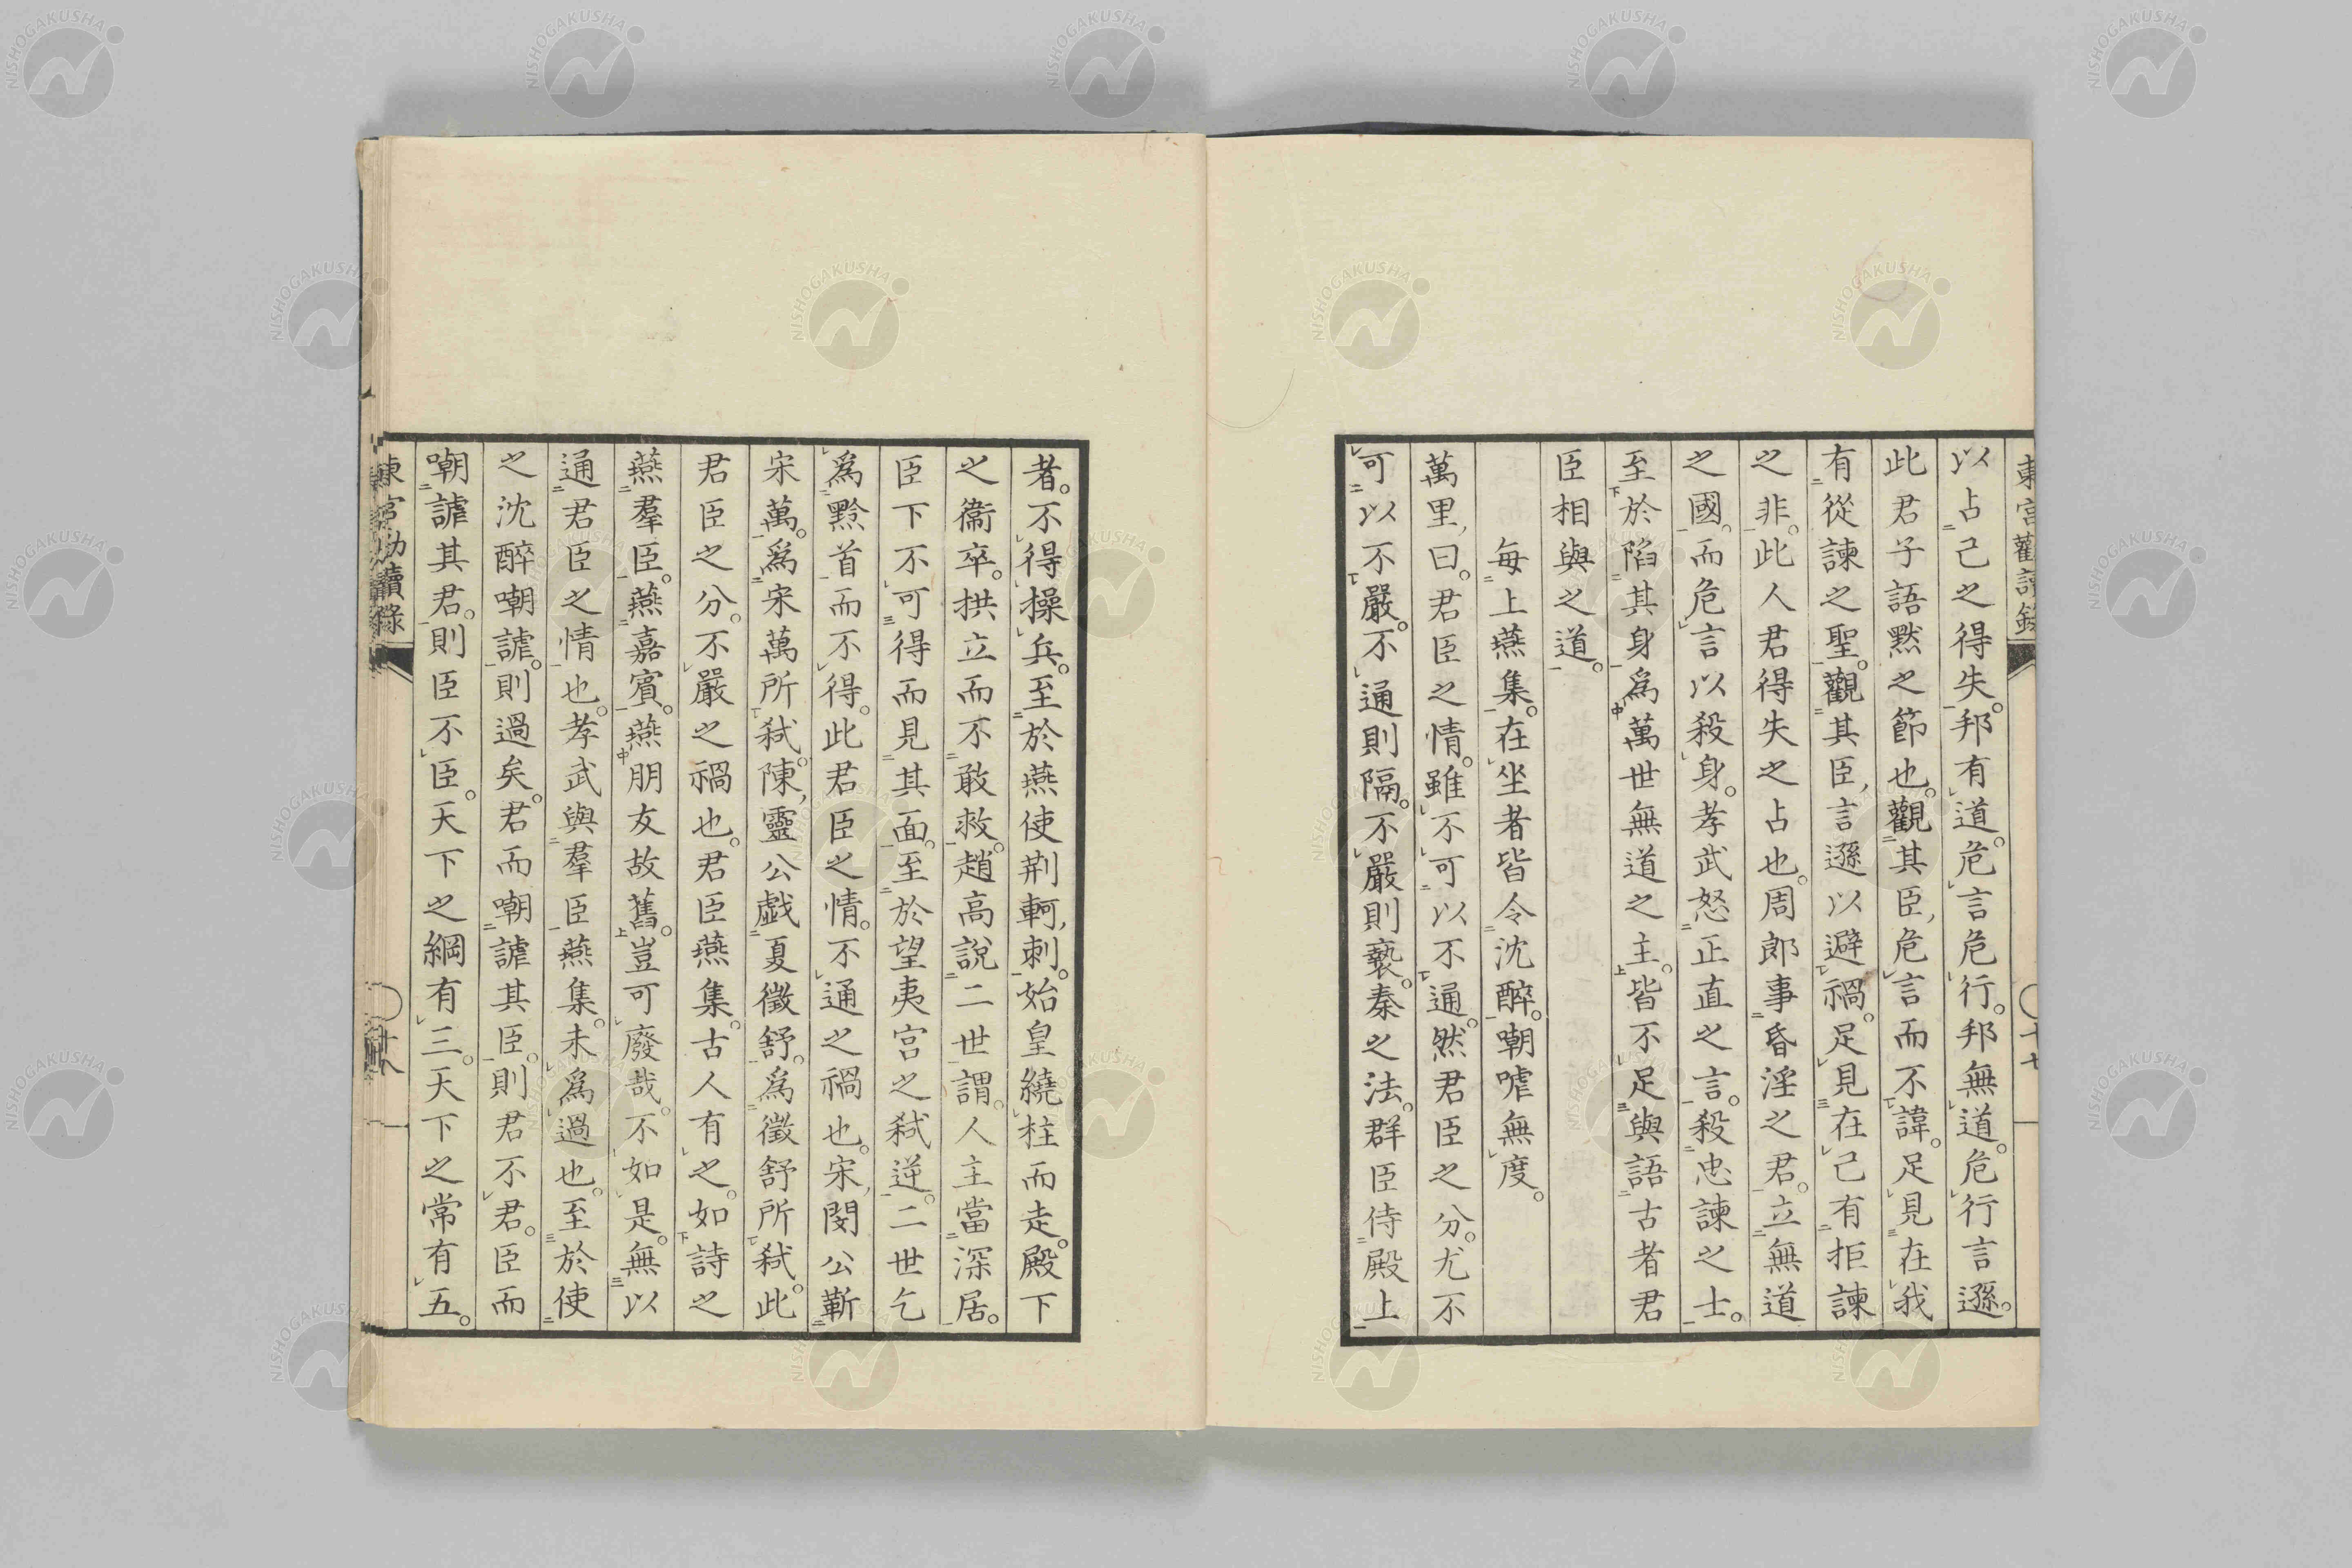 東宮勸讀錄
十七
以占己之得失。邦有道。危言危行。邦無道。危行言遜。
此君子語默之節也。觀其臣、危言而不諱。足見在我
有從諫之聖。觀其臣、言遜以避禍。足見在己有拒諫
之非。此人君得失之占也。周郎事昏淫之君。立無道
之國。而危言以殺身。孝武怒正直之言。殺忠諫之士。
至於陷其身爲萬世無道之主。皆不足與語古者君
臣相與之道。
每上燕集。在坐者皆令沈醉。嘲嘑無度。
萬里、曰。君臣之情。雖不可以不通。然君臣之分。尤不
可以不嚴。不通則隔。不嚴則褻。秦之法。群臣侍殿上
者。不得操兵。至於燕使荆軻、刺。始皇繞柱而走。殿下
之衞卒。拱立而不敢救。趙高說二世謂。人主當深居。
臣下不可得而見其面。至於望夷宮之弑逆。二世乞
爲黔首而不得。此君臣之情。不通之禍也。宋、閔公靳
宋萬。爲宋萬所弑。陳、靈公戲夏徵舒。爲徵舒所弑。此
君臣之分。不嚴之禍也。君臣燕集。古人有之。如詩之
燕羣臣。燕嘉賓。燕朋友故舊。豈可廢哉。不如是。無以
通君臣之情也。孝武與羣臣燕集。未爲過也。至於使
之沈醉嘲謔。則過矣。君而嘲謔其臣。則君不君。臣而
嘲謔其君。則臣不臣。天下之綱有三。天下之常有五。
東宮勸讀錄
NISHOGAKUSHA